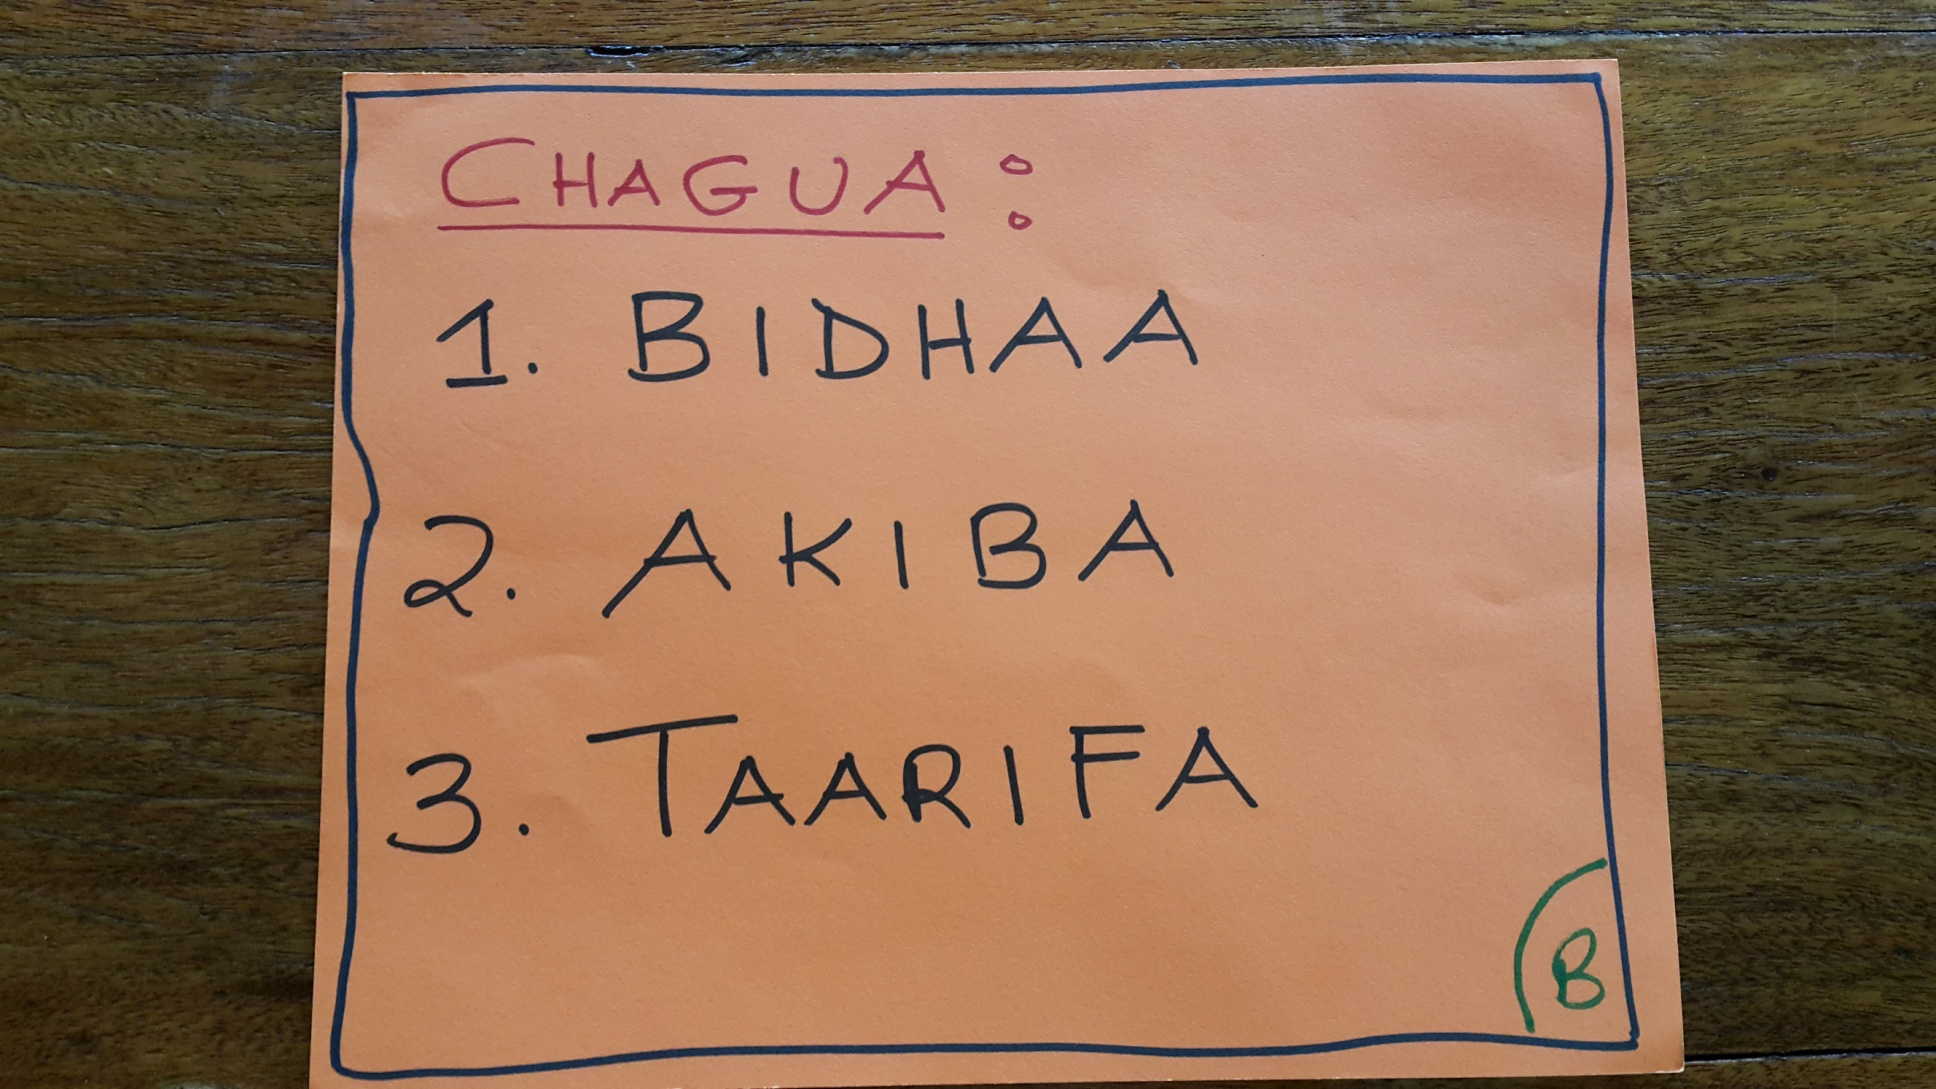 CHAGUA:
1. BIDHAA
2. AKIBA
3. TAARIFA
B